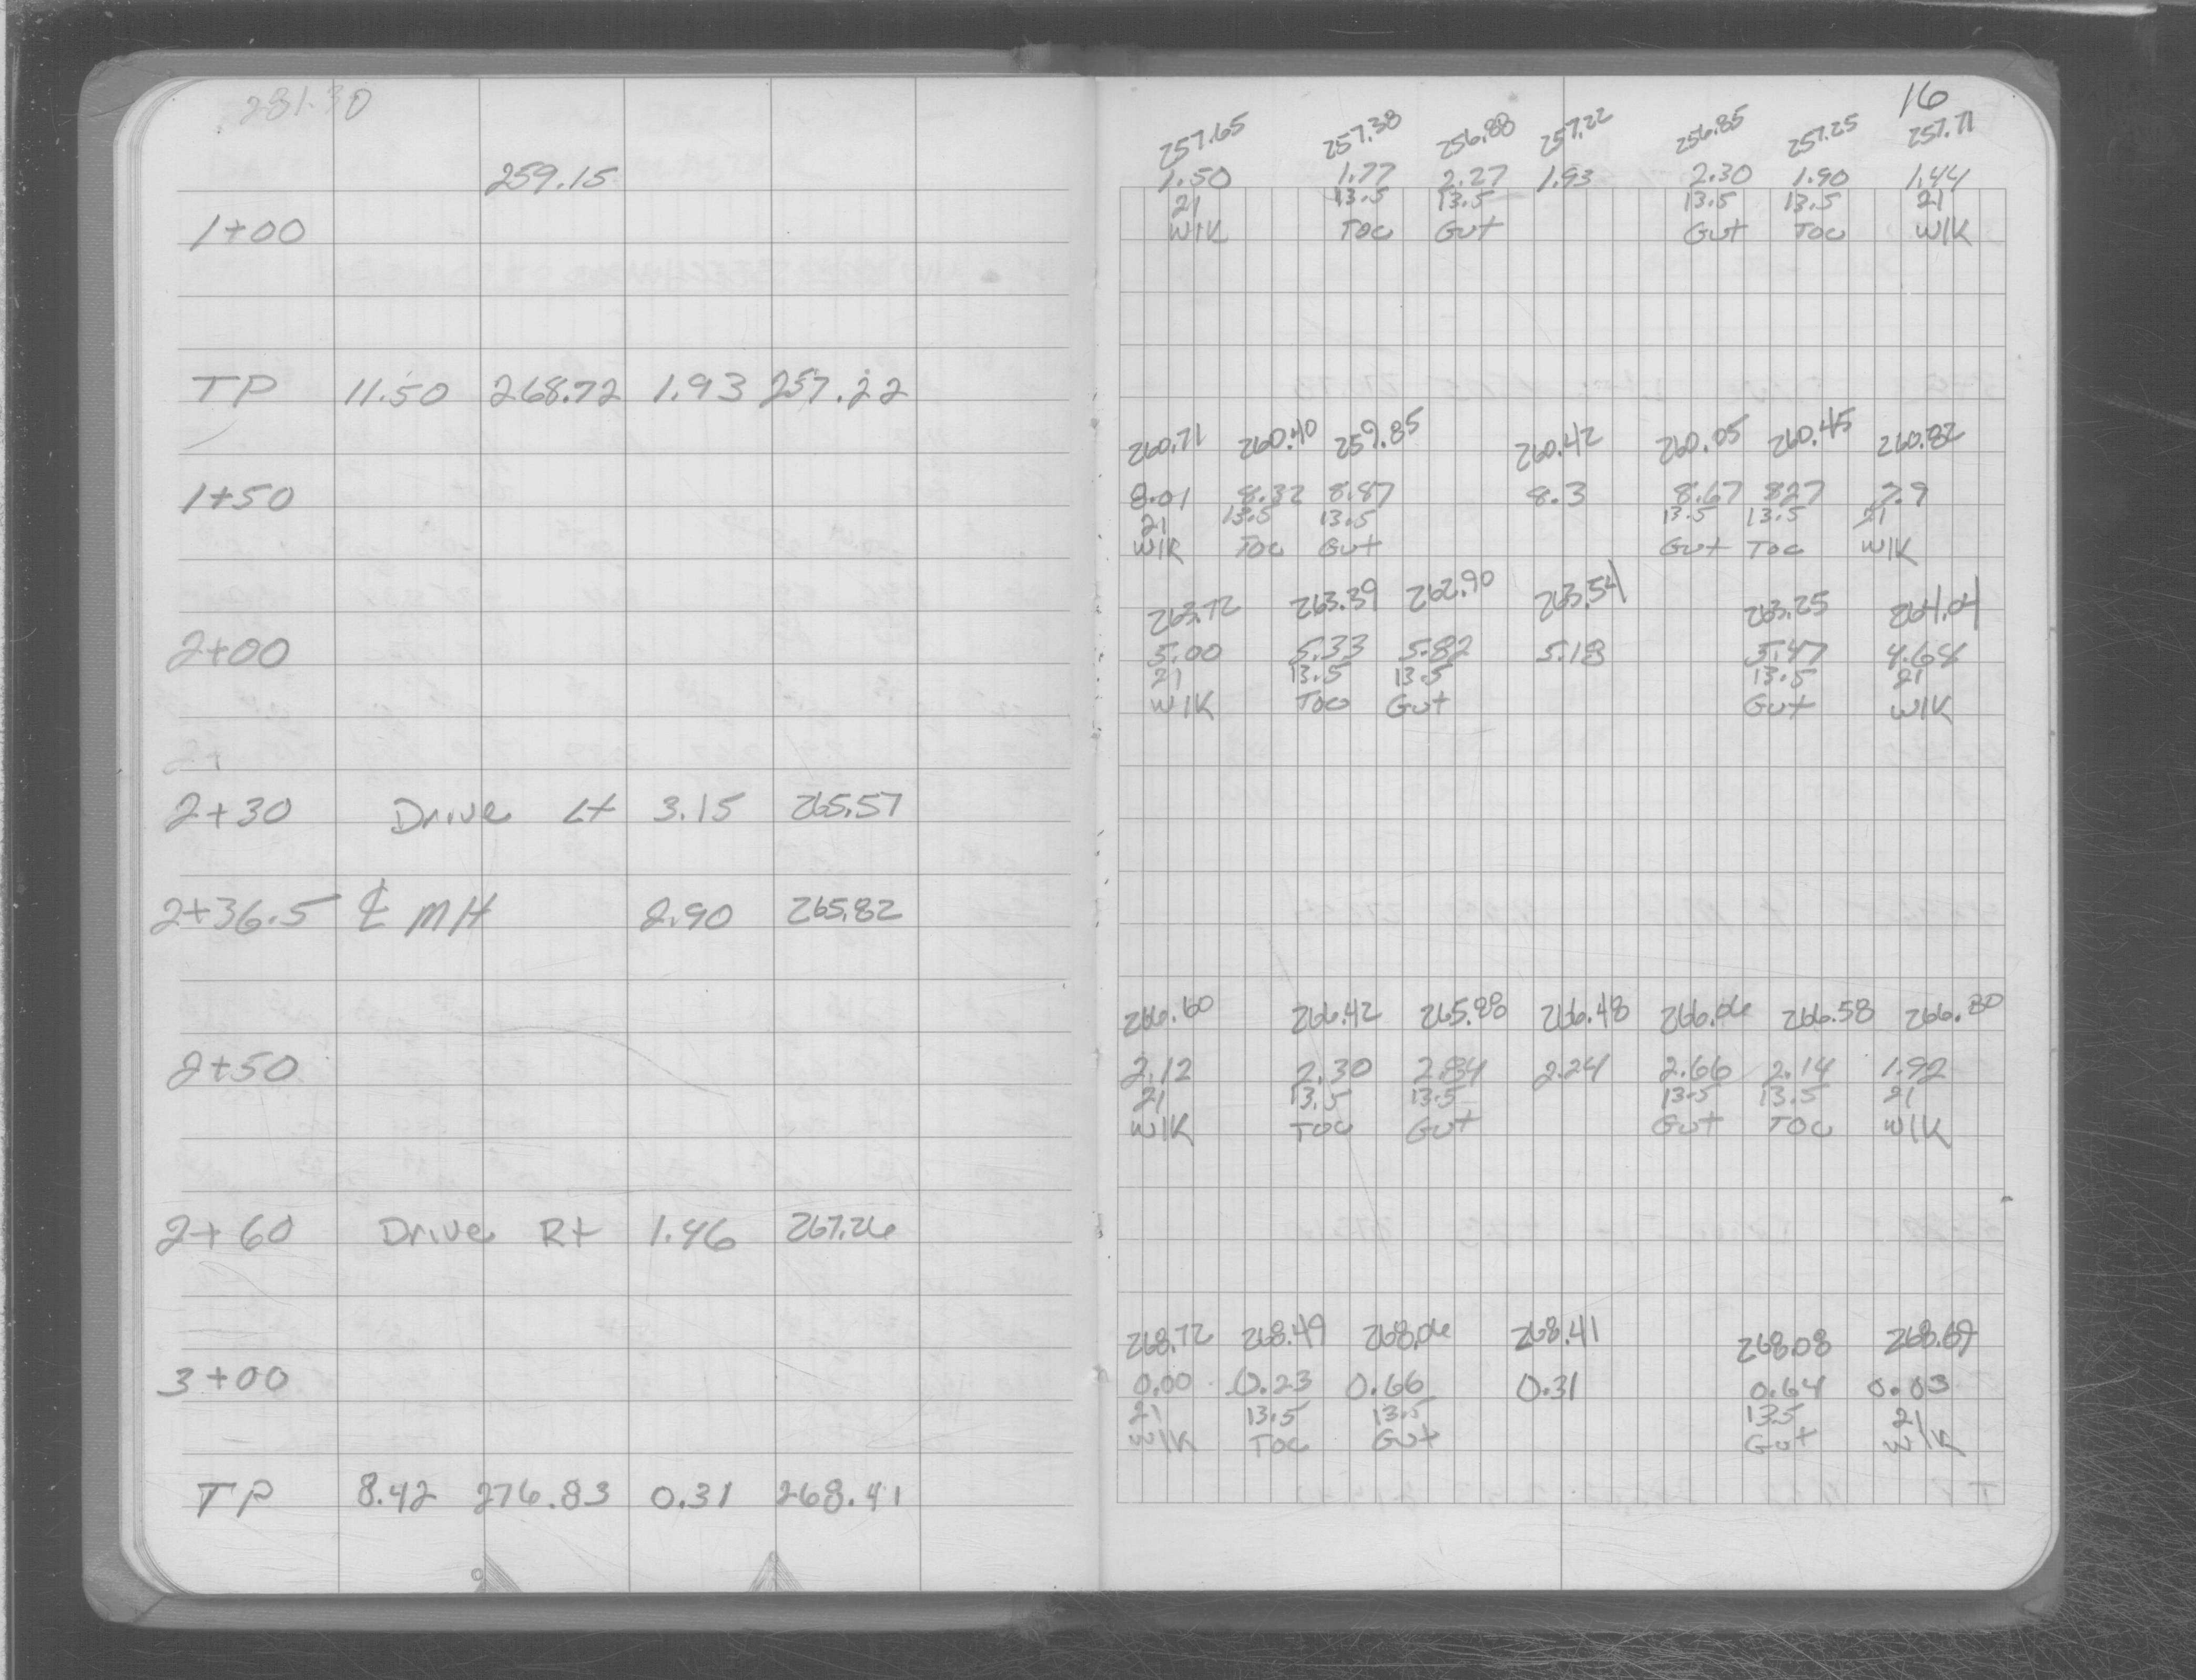 281.30
259.15
1+00
TP 11.50 268.72 1.93 257.22
1+50
2+00
2+
2+30 Drive Lt 3.15 265.57
2+36.5 ℄ MH 2.90 265.82
2+50
2+60 Drive Rt 1.46 267.26
3+00
TP 8.42 276.83 0.31 268.41
16
257.65 257.38 256.88 257.22 256.85 257.25 257.71
1.50 1.77 2.27 1.93 2.30 1.90 1.44
21 13.5 13.5 13.5 13.5 21
W/K TOC Gut Gut TOC W/K
260.71 260.40 259.85 260.42 260.05 260.45 260.82
8.01 8.32 8.87 8.3 8.67 827 7.9
21 13.5 13.5 13.5 13.5 21
W/K TOC Gut Gut TOC W/K
263.72 263.39 262.90 263.54 263.25 264.04
5.00 5.33 5.82 5.18 5.47 4.68
21 13.5 13.5 13.5 21
W/K TOC Gut Gut W/K
266.60 266.42 265.88 266.48 266.06 266.58 266.80
2.12 2.30 2.84 2.24 2.66 2.14 1.92
21 13.5 13.5 13.5 13.5 21
W/K TOC Gut Gut TOC W/K
268.72 268.49 268.06 268.41 268.08 268.69
0.00 0.23 0.66 0.31 0.64 0.03
21 13.5 13.5 13.5 21
W/K TOC Gut Gut W/K